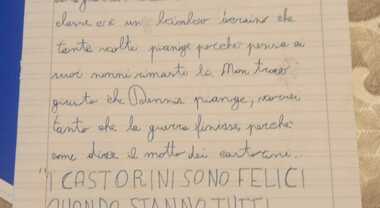 classe c'è un bambino ucraino che
tante volte piange perché pensa ai
suoi nonni rimasti là. Non trovo
giusto che Dennis pianga, vorrei
tanto che la guerra finisse, perché
come dice il motto dei castorini..
"I CASTORINI SONO FELICI
QUANDO STANNO TUTTI